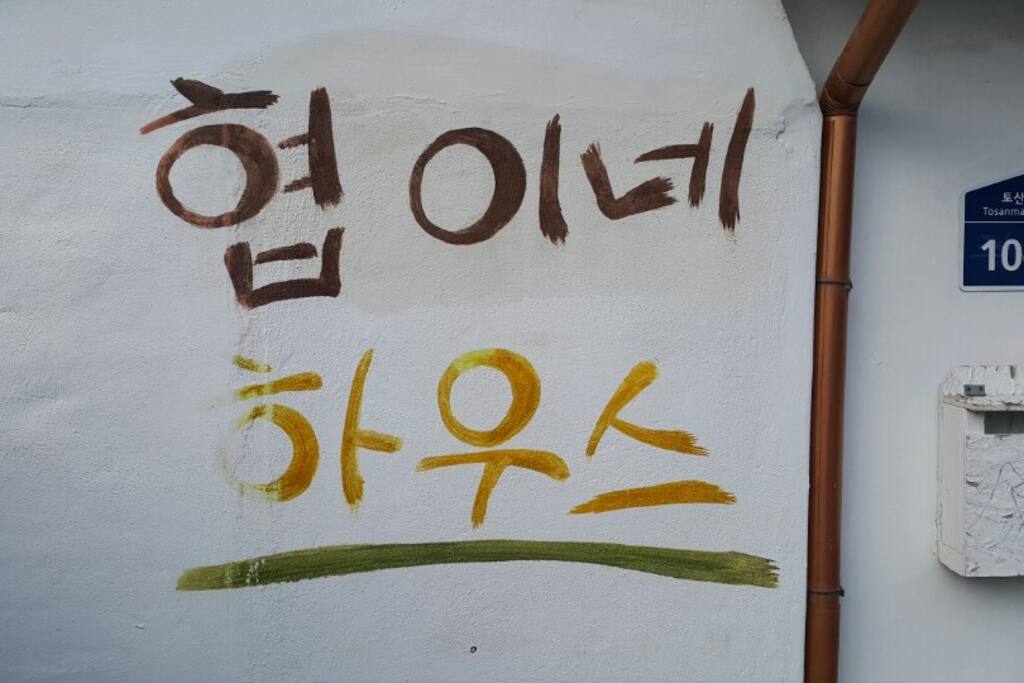 협이네
하우스
토산
10